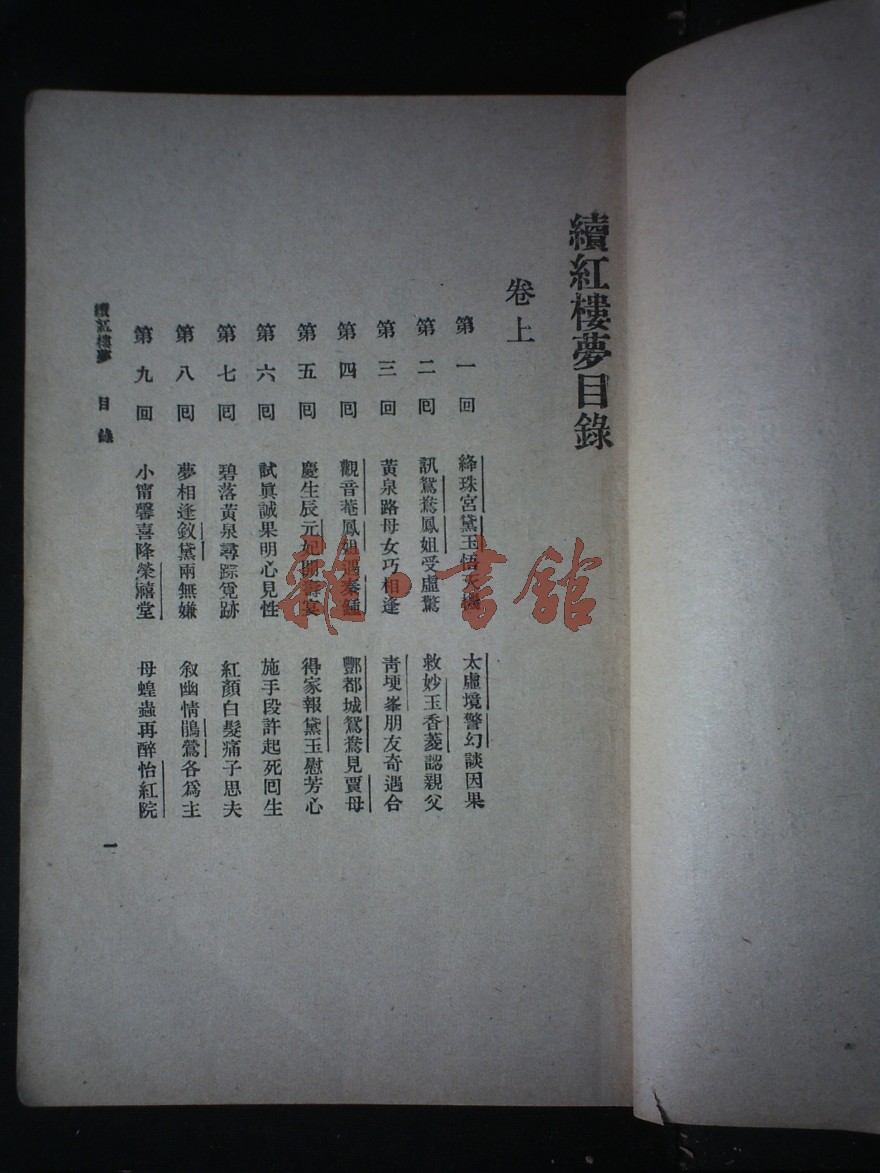 續紅樓夢目錄
卷上
第一回 絳珠宮黛玉悟天機 太虛境警幻談因果
第二囘 訊鴛鴦鳳姐受虛驚 救妙玉香菱認親父
第三回 黃泉路母女巧相逢 靑埂峯朋友奇遇合
第四囘 觀音菴鳳姐遇秦鍾 酆都城鴛鴦見賈母
第五囘 慶生辰元妃開壽宴 得家報黛玉慰芳心
第六囘 試眞誠果明心見性 施手段許起死囘生
第七囘 碧落黃泉尋踪覓跡 紅顏白髮痛子思夫
第八囘 夢相逢釵黛兩無嫌 敘幽情鵑鶯各爲主
第九回 小甯馨喜降榮禧堂 母蝗蟲再醉怡紅院
續紅樓夢 目錄 一
雜·書館